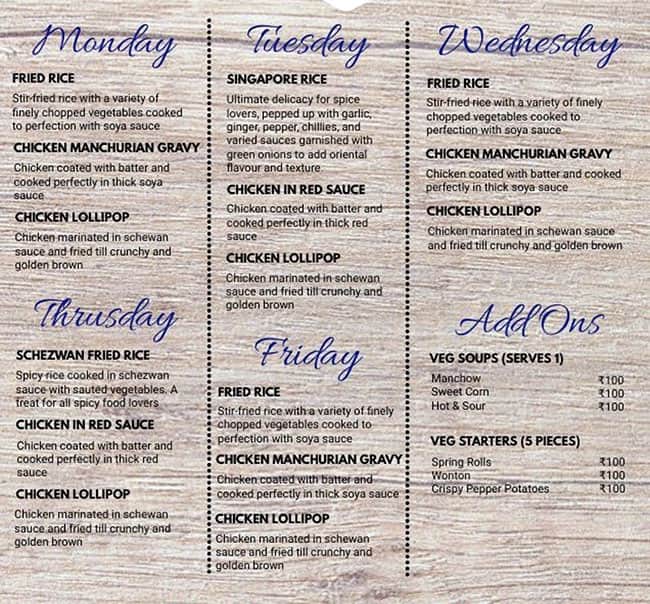 Monday
FRIED RICE
Stir-fried rice with a variety of
finely chopped vegetables cooked
to perfection with soya sauce
CHICKEN MANCHURIAN GRAVY
Chicken coated with batter and
cooked perfectly in thick soya
sauce
CHICKEN LOLLIPOP
Chicken marinated in schewan
sauce and fried till crunchy and
golden brown
Tuesday
SINGAPORE RICE
Ultimate delicacy for spice
lovers, pepped up with garlic,
ginger, pepper, chillies, and
varied sauces garnished with
green onions to add oriental
flavour and texture
CHICKEN IN RED SAUCE
Chicken coated with batter and
cooked perfectly in thick red
sauce
CHICKEN LOLLIPOP
Chicken marinated in schewan
sauce and fried till crunchy and
golden brown
Wednesday
FRIED RICE
Stir-fried rice with a variety of finely
chopped vegetables cooked to
perfection with soya sauce
CHICKEN MANCHURIAN GRAVY
Chicken coated with batter and cooked
perfectly in thick soya sauce
CHICKEN LOLLIPOP
Chicken marinated in schewan sauce
and fried till crunchy and golden brown
Thrusday
SCHEZWAN FRIED RICE
Spicy rice cooked in schezwan
sauce with sauted vegetables. A
treat for all spicy food lovers
CHICKEN IN RED SAUCE
Chicken coated with batter and
cooked perfectly in thick red
sauce
CHICKEN LOLLIPOP
Chicken marinated in schewan
sauce and fried till crunchy and
golden brown
Friday
FRIED RICE
Stir-fried rice with a variety of finely
chopped vegetables cooked to
perfection with soya sauce
CHICKEN MANCHURIAN GRAVY
Chicken coated with batter and
cooked perfectly in thick soya sauce
CHICKEN LOLLIPOP
Chicken marinated in schewan
sauce and fried till crunchy and
golden brown
Add Ons
VEG SOUPS (SERVES 1)
Manchow ₹100
Sweet Corn ₹100
Hot & Sour ₹100
VEG STARTERS (5 PIECES)
Spring Rolls ₹100
Wonton ₹100
Crispy Pepper Potatoes ₹100